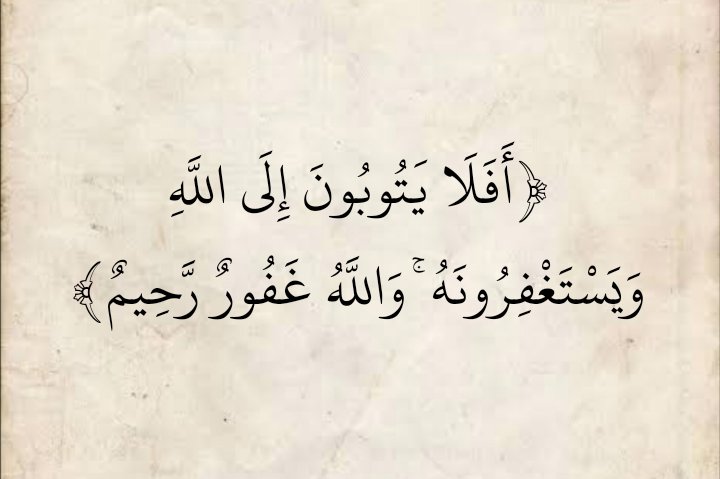 ﴿أَفَلَا يَتُوبُونَ إِلَى اللَّهِ
وَيَسْتَغْفِرُونَهُ ۚ وَاللَّهُ غَفُورٌ رَّحِيمٌ﴾